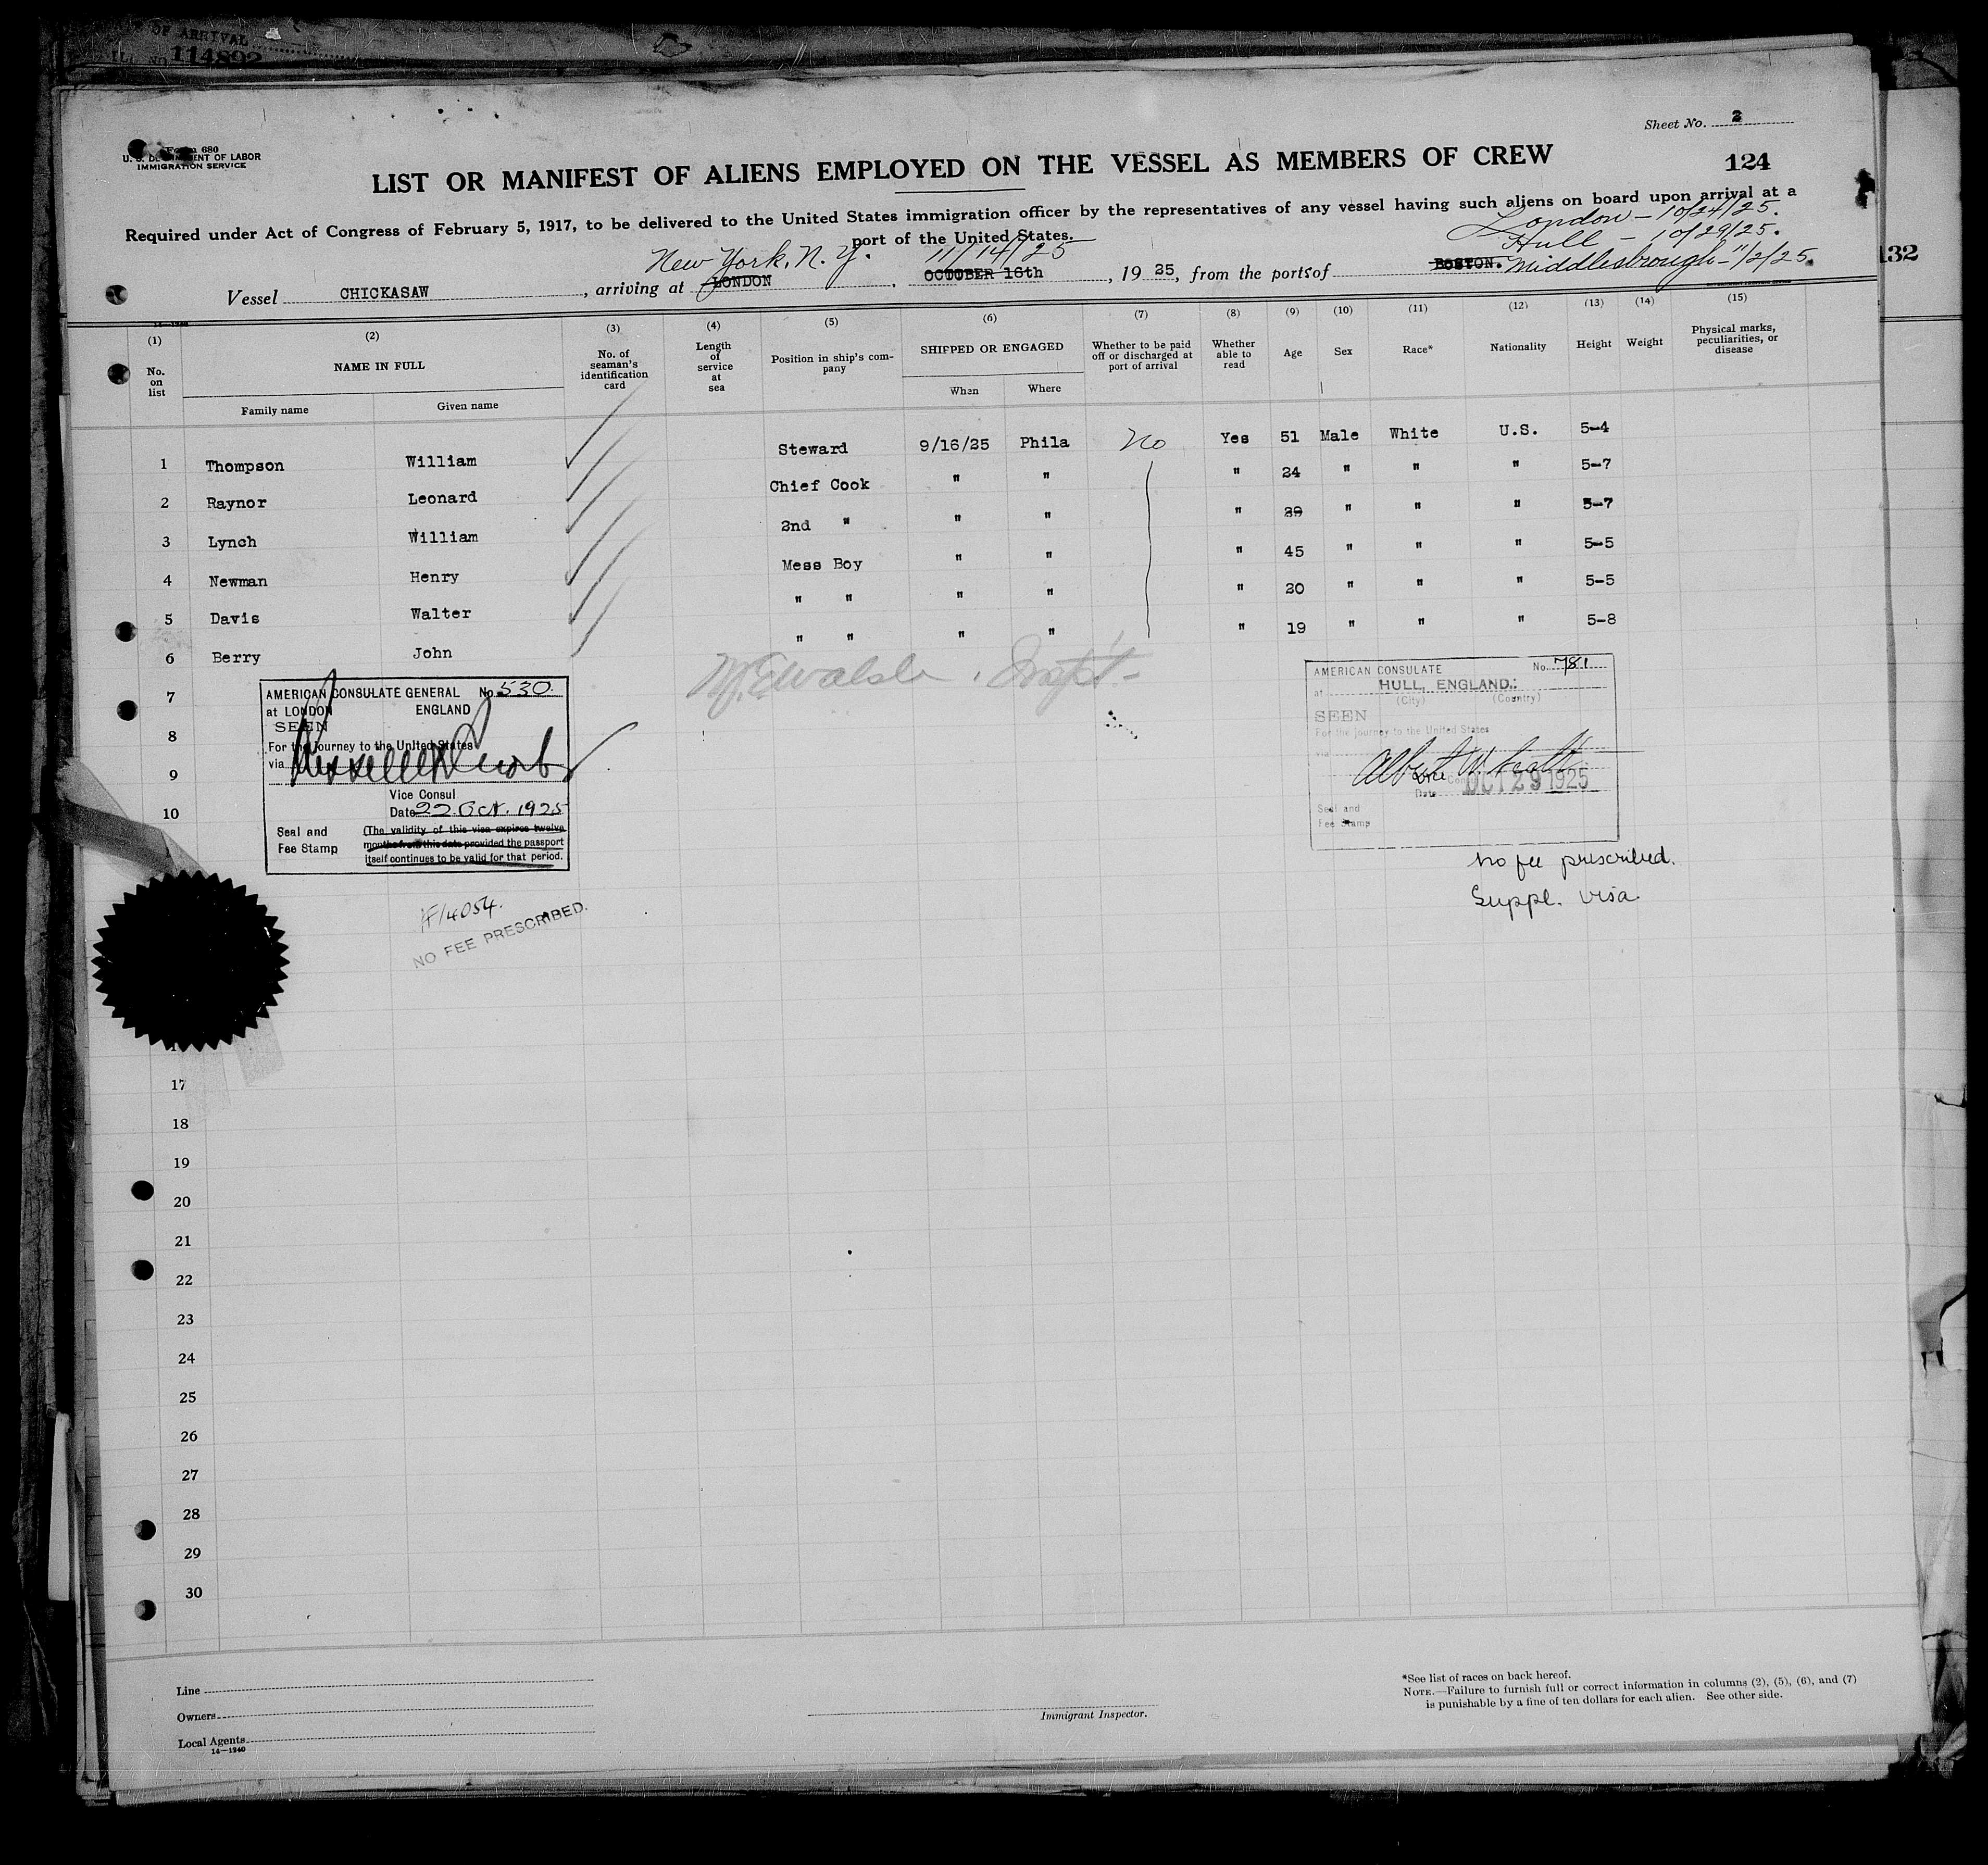 OF ARRIVAL
114892
Sheet No. 2
Form 680
U. S. DEPARTMENT OF LABOR
IMMIGRATION SERVICE
LIST OR MANIFEST OF ALIENS EMPLOYED ON THE VESSEL AS MEMBERS OF CREW
124
Required under Act of Congress of February 5, 1917, to be delivered to the United States immigration officer by the representatives of any vessel having such aliens on board upon arrival at a
port of the United States.
London - 10/24/25.
Hull - 10/29/25.
New York, N. Y. 11/14/25
Vessel CHICKASAW, arriving at LONDON, OCTOBER 16th, 1925, from the ports of BOSTON. Middlesbrough - 11/2/25.
132
(1) (2) (3) (4) (5) (6) (7) (8) (9) (10) (11) (12) (13) (14) (15)
No. on list NAME IN FULL No. of seaman's identification card Length of service at sea Position in ship's company SHIPPED OR ENGAGED Whether to be paid off or discharged at port of arrival Whether able to read Age Sex Race* Nationality Height Weight Physical marks, peculiarities, or disease
Family name Given name When Where
1 Thompson William Steward 9/16/25 Phila No Yes 51 Male White U.S. 5-4
2 Raynor Leonard Chief Cook " " " 24 " " " 5-7
3 Lynch William 2nd " " " " 39 " " " 5-7
4 Newman Henry Mess Boy " " " 45 " " " 5-5
5 Davis Walter " " " " " 20 " " " 5-5
6 Berry John " " " " " 19 " " " 5-8
7
8
9
10
AMERICAN CONSULATE GENERAL No. 530
at LONDON ENGLAND
SEEN
For the journey to the United States
via
Vice Consul
Date 22 Oct. 1925
Seal and
Fee Stamp
(The validity of this visa expires twelve
months from this date provided the passport
itself continues to be valid for that period.
14054.
NO FEE PRESCRIBED.
AMERICAN CONSULATE No. 781
at HULL, ENGLAND.
(City) (Country)
SEEN
For the journey to the United States
via
Albert W. Scott
Vice Consul
Date OCT 29 1925
Seal and
Fee Stamp
No fee prescribed.
Suppl. visa
17
18
19
20
21
22
23
24
25
26
27
28
29
30
Line
Owners
Local Agents
14—1240
Immigrant Inspector.
*See list of races on back hereof.
NOTE.—Failure to furnish full or correct information in columns (2), (5), (6), and (7)
is punishable by a fine of ten dollars for each alien. See other side.